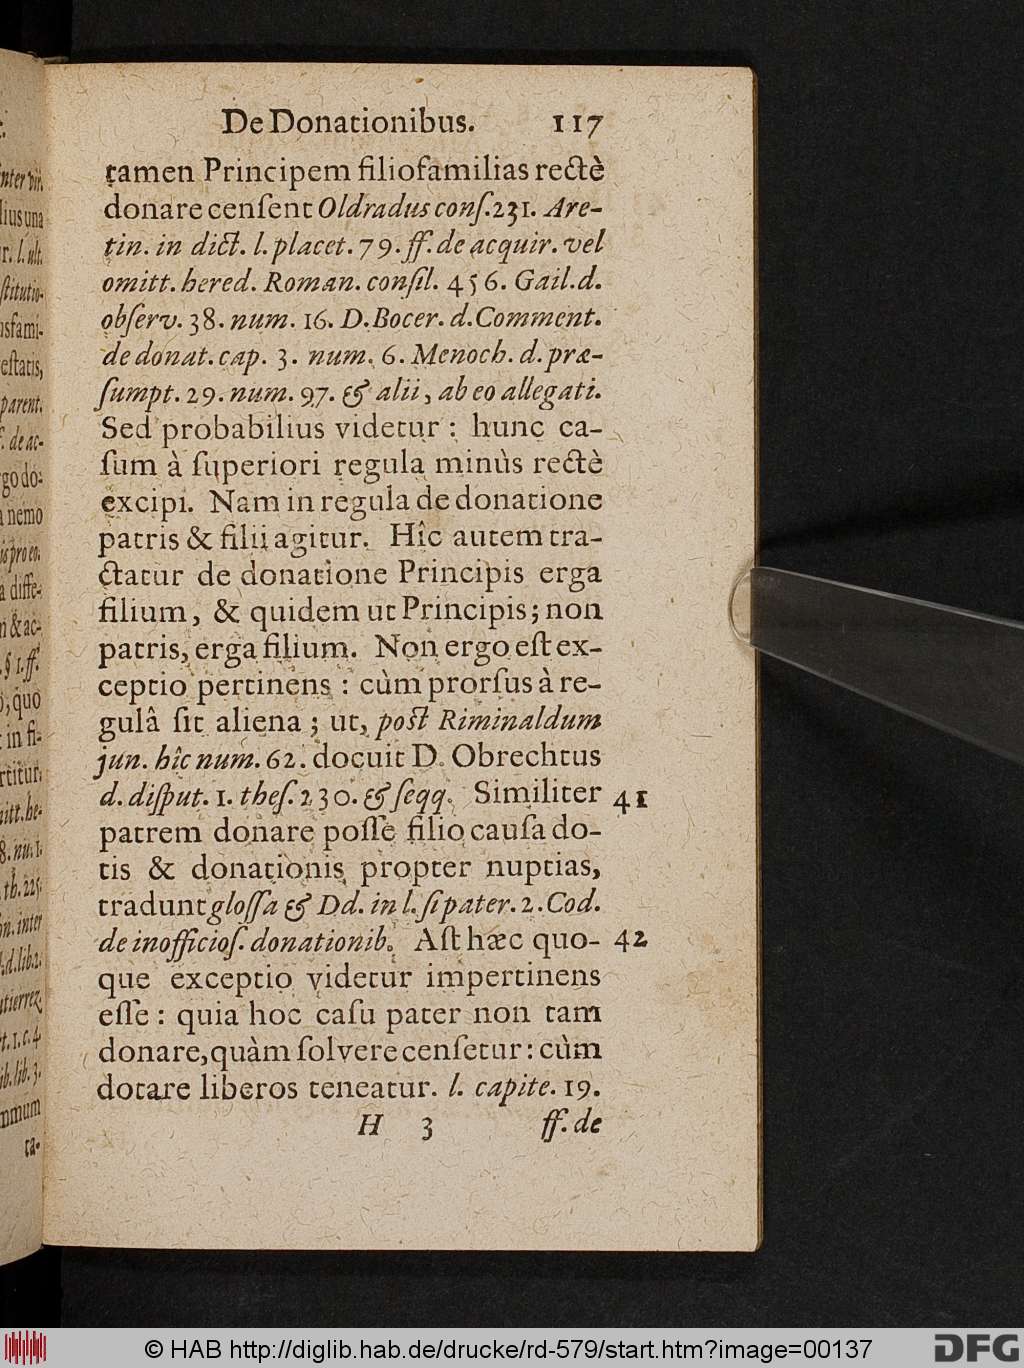 De Donationibus. 117
tamen Principem filiofamilias rectè
donare cenſent Oldradus conſ. 231. Are-
tin. in dict. l. placet. 79. ff. de acquir. vel
omitt. hered. Roman. conſil. 456. Gail. d.
obſerv. 38. num. 16. D. Bocer. d. Comment.
de donat. cap. 3. num. 6. Menoch. d. præ-
ſumpt. 29. num. 97. & alii, ab eo allegati.
Sed probabilius videtur : hunc ca-
ſum à ſuperiori regula minùs rectè
excipi. Nam in regula de donatione
patris & filii agitur. Hîc autem tra-
ctatur de donatione Principis erga
filium, & quidem ut Principis; non
patris, erga filium. Non ergo eſt ex-
ceptio pertinens : cùm prorſus à re-
gulâ ſit aliena ; ut, poſt Riminaldum
jun. hîc num. 62. docuit D. Obrechtus
d. diſput. 1. theſ. 230. & ſeqq. Similiter 41
patrem donare poſſe filio cauſa do-
tis & donationis propter nuptias,
tradunt gloſſa & Dd. in l. ſi pater. 2. Cod.
de inofficioſ. donationib. Aſt hæc quo- 42
que exceptio videtur impertinens
eſſe : quia hoc caſu pater non tam
donare, quàm ſolvere cenſetur : cùm
dotare liberos teneatur. l. capite. 19.
H 3 ff. de
© HAB http://diglib.hab.de/drucke/rd-579/start.htm?image=00137
DFG